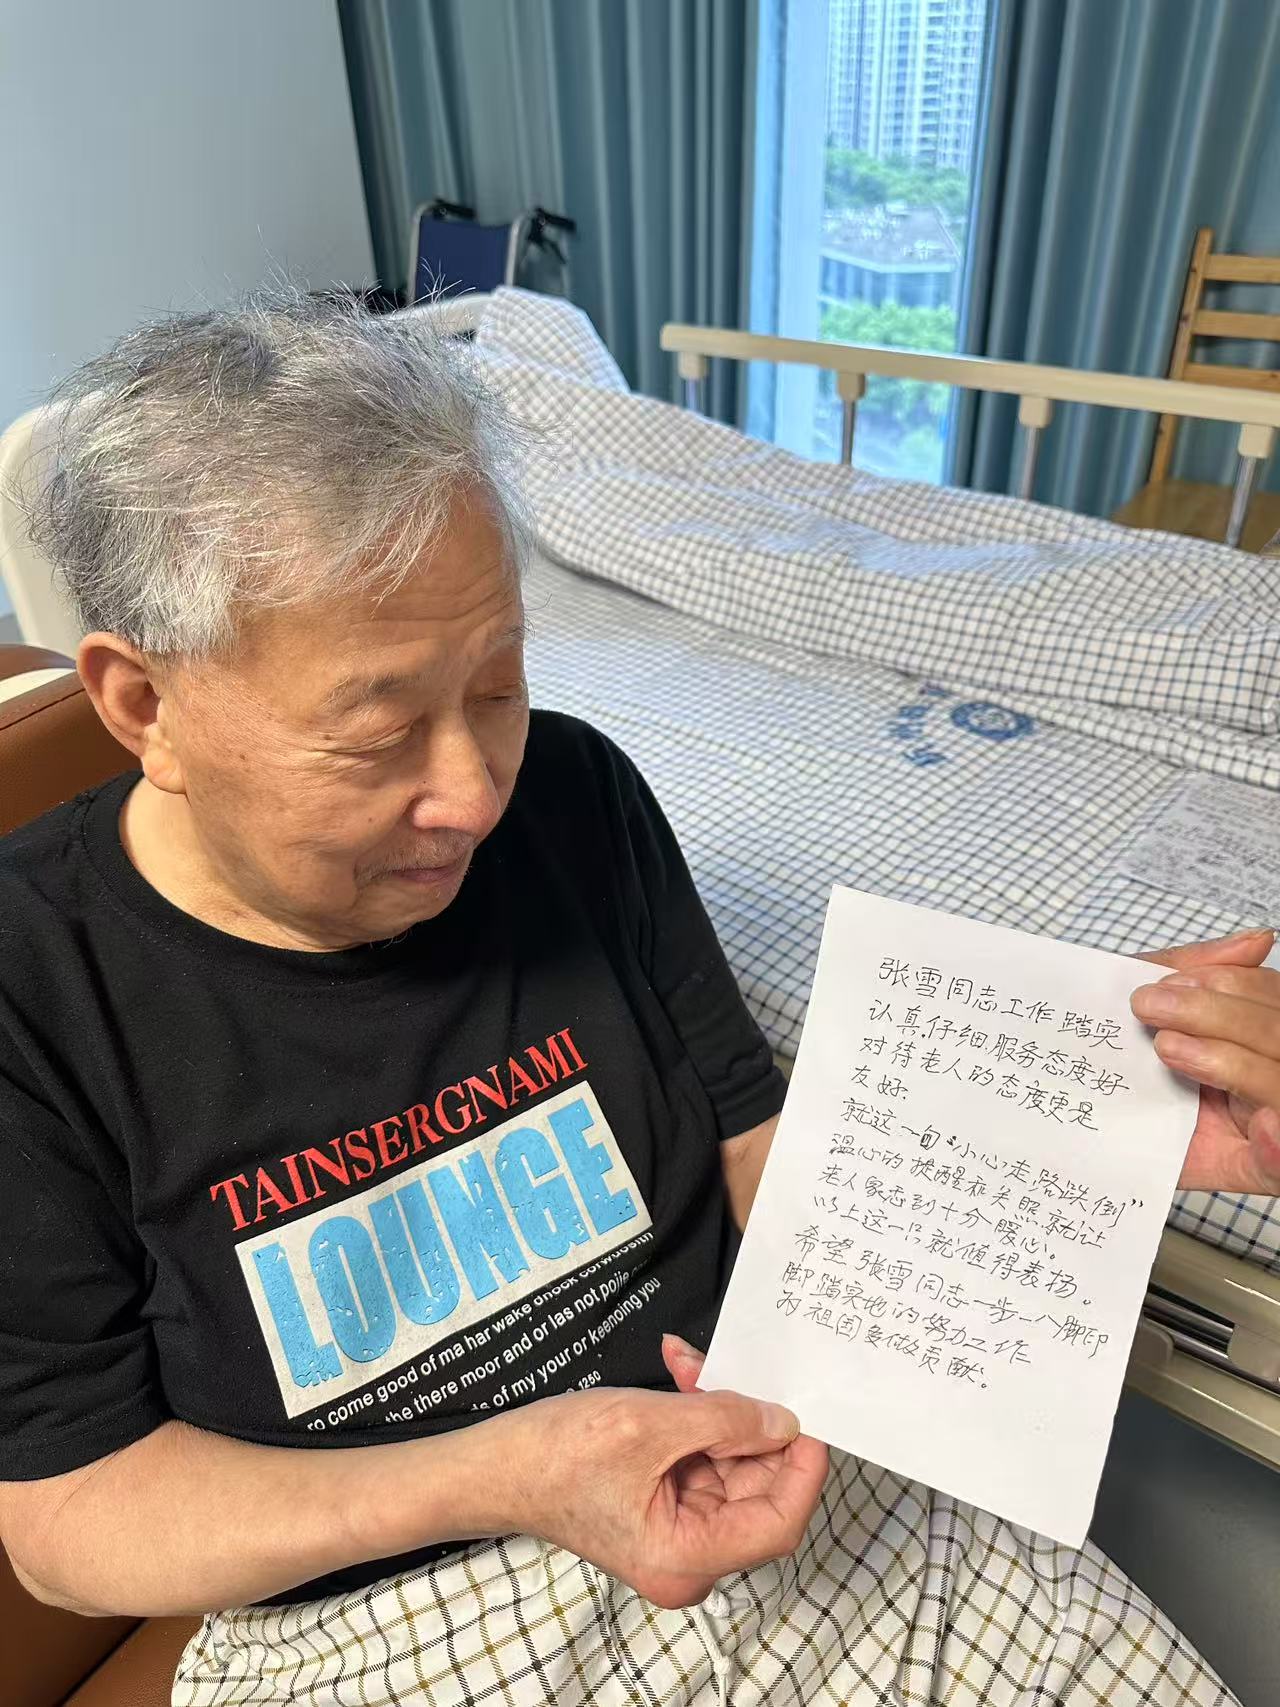 张雪同志工作踏实
认真.仔细.服务态度好
对待老人的态度更是
友好.
就这一句“小心走路跌倒”
温心的提醒和关照.就让
老人家感到十分暖心。
以上这一点就值得表扬。
希望张雪同志一步一个脚印
脚踏实地的努力工作
为祖国多做贡献。
TAINSERGNAMI
LOUNGE
ro come good of ma har wake chock
the there moor and or las not pojie
of my your or keenoing you
1250